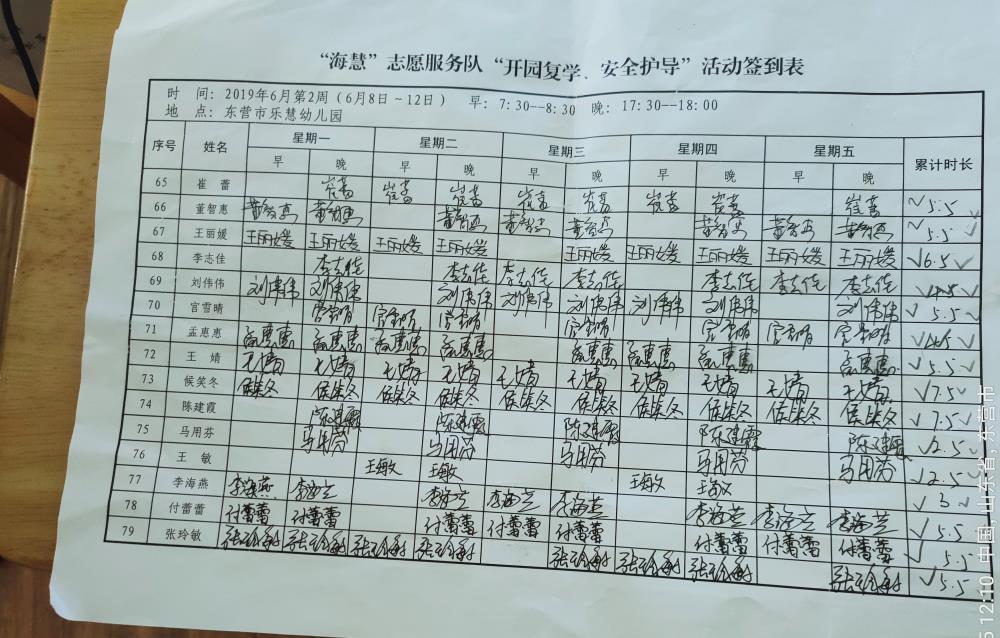 “海慧”志愿服务队“开园复学、安全护导”活动签到表
时 间：2019年6月第2周（6月8日~12日） 早：7:30--8:30 晚：17:30--18:00
地 点：东营市乐慧幼儿园
序号 姓名 星期一 星期二 星期三 星期四 星期五 累计时长
早 晚 早 晚 早 晚 早 晚 早 晚
65 崔 蕾 崔蕾 崔蕾 崔蕾 崔蕾 崔蕾 崔蕾 崔蕾 崔蕾 5.5
66 董智惠 董智惠 董智惠 董智惠 董智惠 董智惠 董智惠 董智惠 董智惠 5.5
67 王丽媛 王丽媛 王丽媛 王丽媛 王丽媛 王丽媛 王丽媛 王丽媛 王丽媛 王丽媛 √6.5√
68 李志佳 李志佳 李志佳 李志佳 李志佳 李志佳 李志佳 李志佳 √4.5√
69 刘伟伟 刘伟伟 刘伟伟 刘伟伟 刘伟伟 刘伟伟 刘伟伟 刘伟伟 刘伟伟 √5.5√
70 宫雪晴 宫雪晴 宫雪晴 宫雪晴 宫雪晴 宫雪晴 宫雪晴 宫雪晴 √4.5√
71 孟惠惠 孟惠惠 孟惠惠 孟惠惠 孟惠惠 孟惠惠 孟惠惠 孟惠惠 孟惠惠 √5.5√
72 王 婧 王婧 王婧 王婧 王婧 王婧 王婧 王婧 王婧 王婧 王婧 √7.5√
73 候笑冬 侯笑冬 侯笑冬 侯笑冬 侯笑冬 侯笑冬 侯笑冬 侯笑冬 侯笑冬 侯笑冬 侯笑冬 √7.5√
74 陈建霞 陈建霞 陈建霞 陈建霞 陈建霞 陈建霞 √2.5√
75 马用芬 马用芬 马用芬 马用芬 马用芬 马用芬 √2.5√
76 王 敏 王敏 王敏 王敏 王敏 √3√
77 李海燕 李海燕 李海兰 李海兰 李海兰 李海兰 李海兰 李海兰 李海兰 √5.5
78 付蕾蕾 付蕾蕾 付蕾蕾 付蕾蕾 付蕾蕾 付蕾蕾 付蕾蕾 付蕾蕾 付蕾蕾 √5.5
79 张玲敏 张玲敏 张玲敏 张玲敏 张玲敏 张玲敏 张玲敏 张玲敏 张玲敏 √5.5
12:10 中国·山东省,东营市